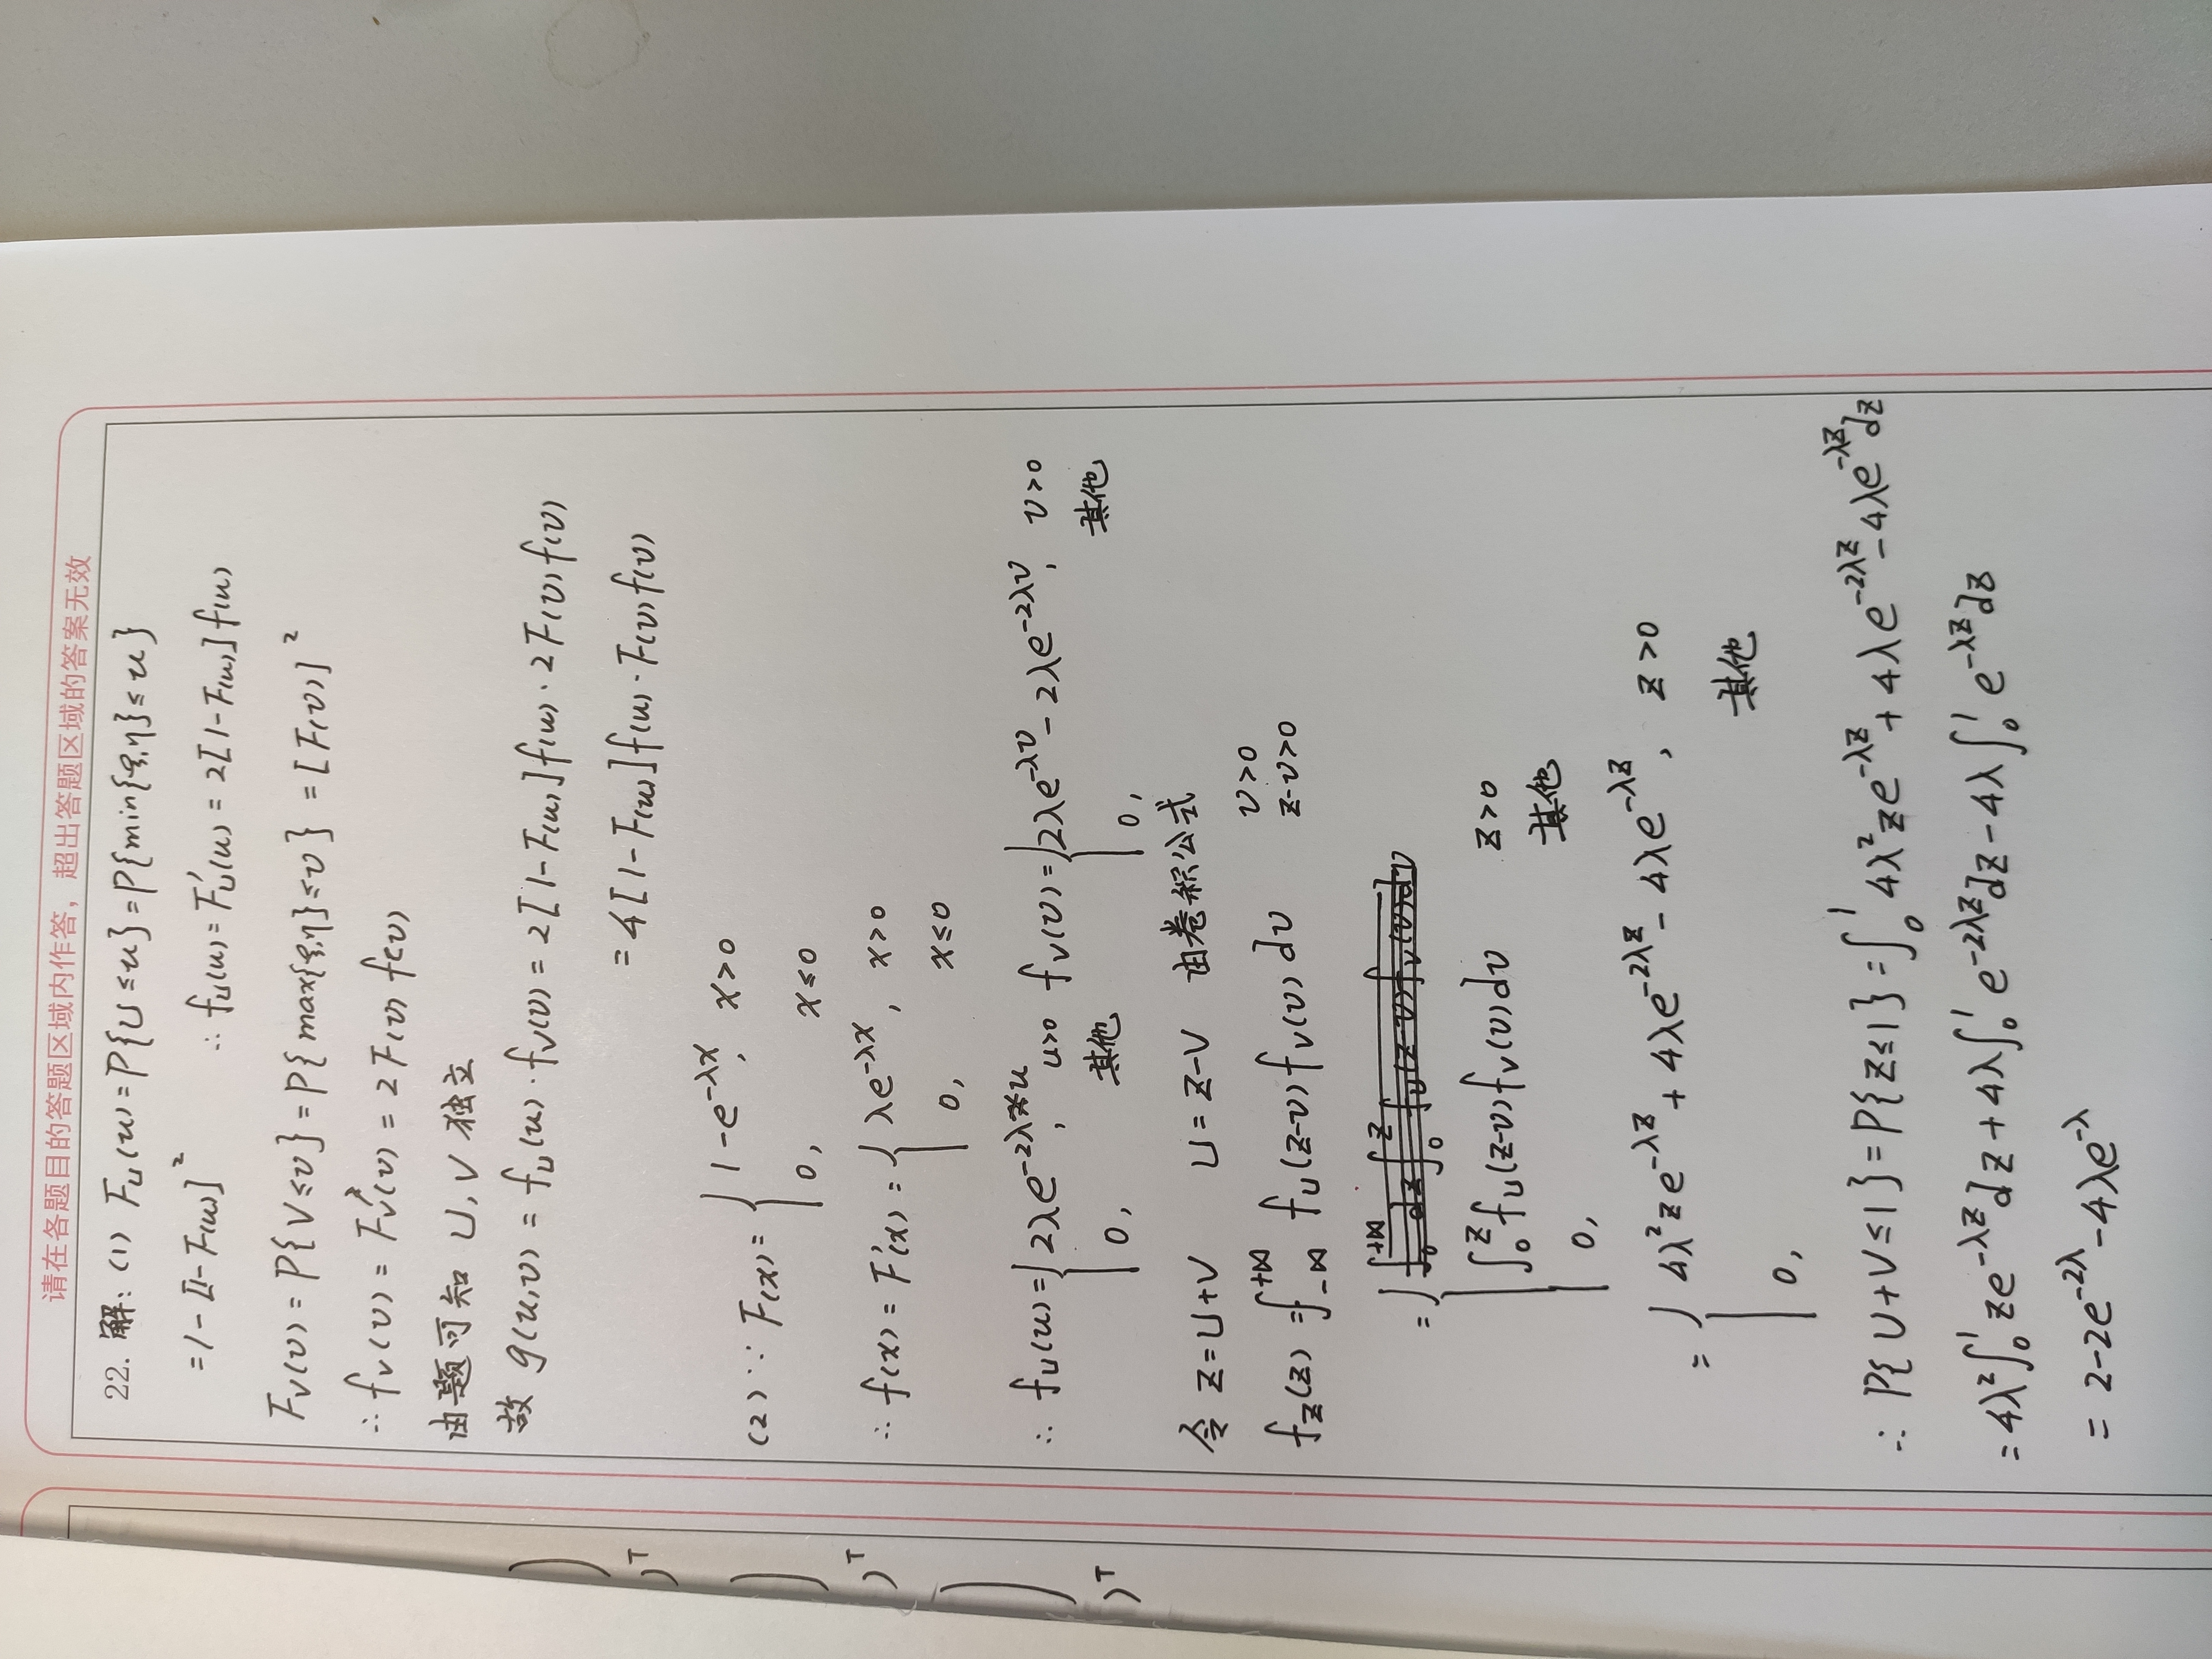 请在各题目的答题区域内作答，超出答题区域的答案无效
22. 解: (1) F_U(u) = P{U≤u} = P{min{ξ,η}≤u}
= 1 - [1-F(u)]²
∴ f_U(u) = F_U'(u) = 2[1-F(u)]f(u)
F_V(v) = P{V≤v} = P{max{ξ,η}≤v} = [F(v)]²
∴ f_V(v) = F_V'(v) = 2F(v)f(v)
由题可知 U,V 独立
故 g(u,v) = f_U(u)·f_V(v) = 2[1-F(u)]f(u)·2F(v)f(v)
= 4[1-F(u)]f(u)·F(v)f(v)
(2) ∵ F(x) = { 1-e^{-λx}, x>0
0, x≤0
∴ f(x) = F'(x) = { λe^{-λx}, x>0
0, x≤0
∴ f_U(u) = { 2λe^{-2λu}, u>0 f_V(v) = { 2λe^{-λv} - 2λe^{-2λv}, v>0
0, 其他 0, 其他
令 Z=U+V U=Z-V 由卷积公式
f_Z(z) = ∫_{-∞}^{+∞} f_U(z-v)f_V(v)dv v>0
z-v>0
= { ∫_0^z f_U(z-v)f_V(v)dv z>0
0, 其他
= { 4λ²ze^{-λz} + 4λe^{-2λz} - 4λe^{-λz}, z>0
0, 其他
∴ P{U+V≤1} = P{Z≤1} = ∫_0^1 4λ²ze^{-λz} + 4λe^{-2λz} - 4λe^{-λz}dz
= 4λ²∫_0^1 ze^{-λz}dz + 4λ∫_0^1 e^{-2λz}dz - 4λ∫_0^1 e^{-λz}dz
= 2-2e^{-2λ}-4λe^{-λ}
)
)ᵀ
)
)ᵀ
)
)ᵀ